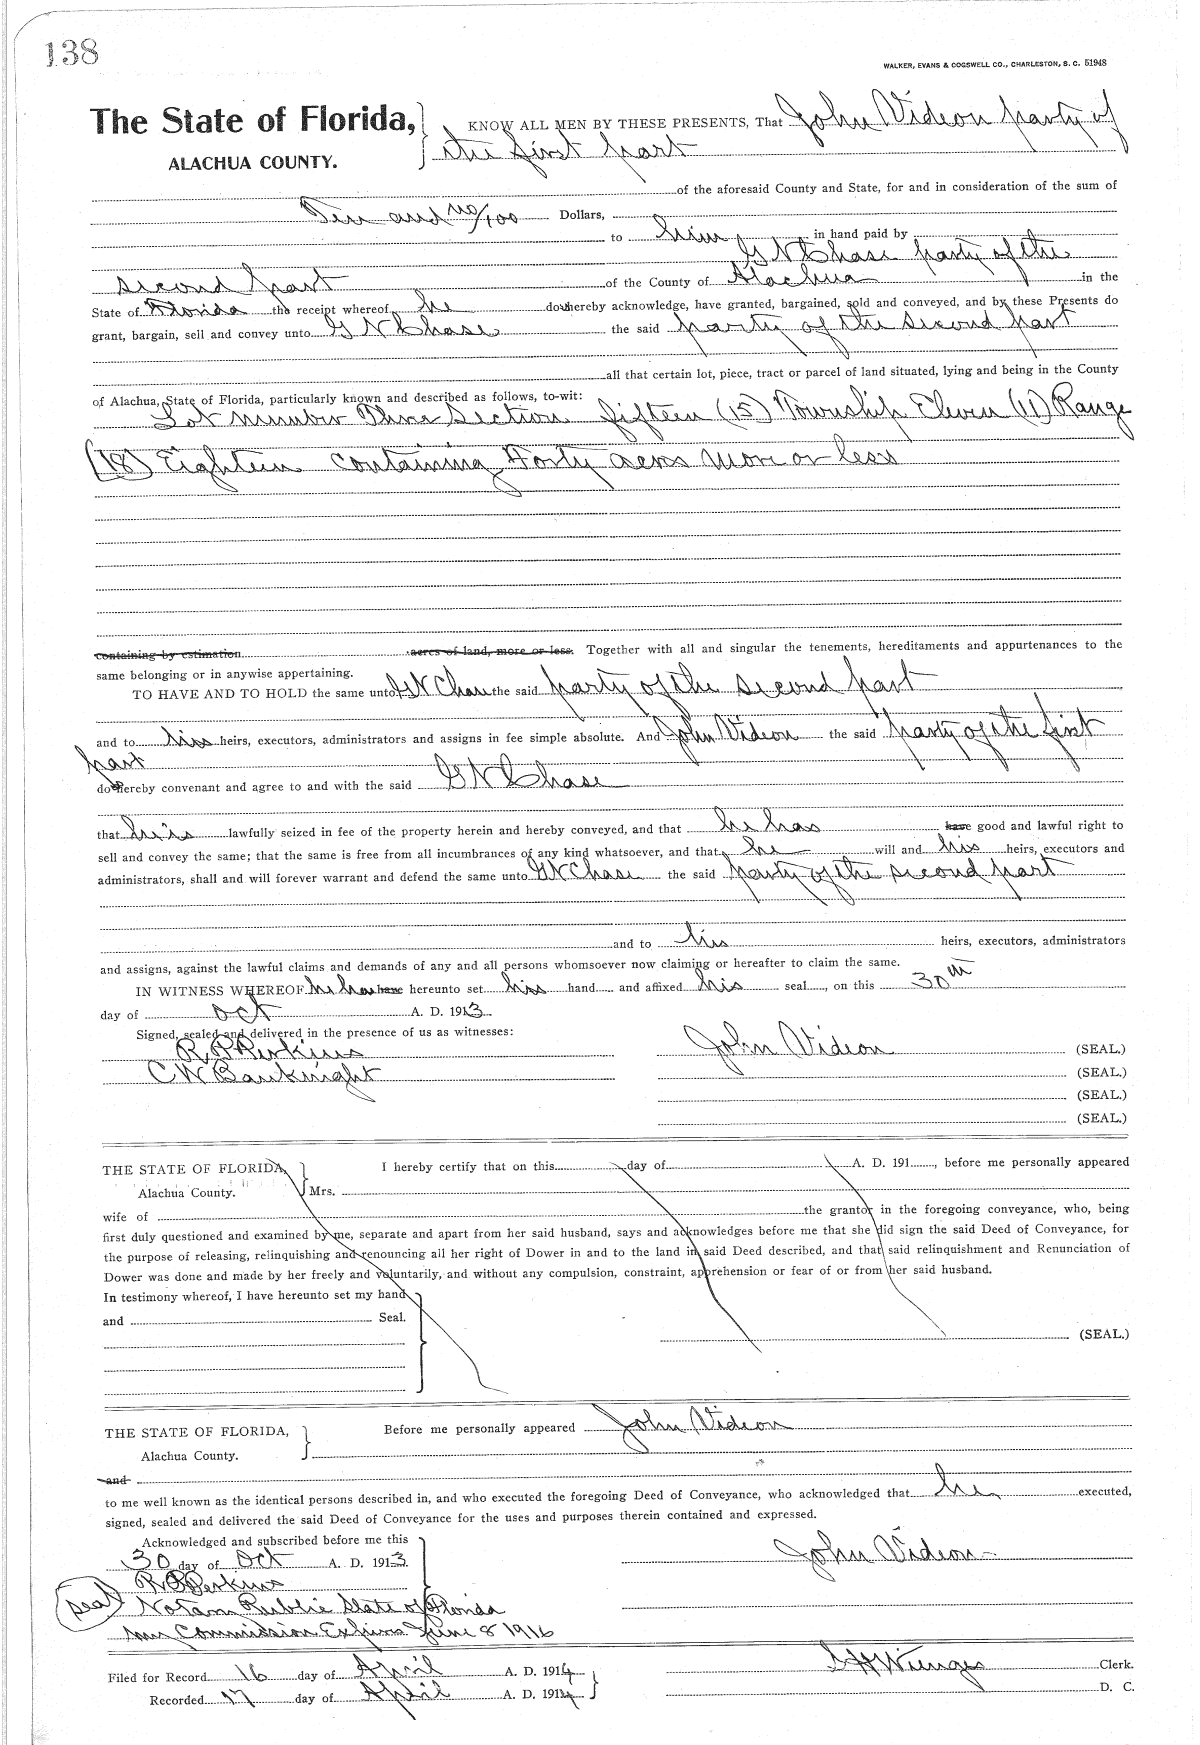 138
WALKER, EVANS & COGSWELL CO., CHARLESTON, S. C. 51948
The State of Florida, KNOW ALL MEN BY THESE PRESENTS, That John Videon party of
ALACHUA COUNTY. the first part
of the aforesaid County and State, for and in consideration of the sum of
Ten and no/100 Dollars,
to him in hand paid by
G N Chase party of the
second part of the County of Alachua in the
State of Florida the receipt whereof he does hereby acknowledge, have granted, bargained, sold and conveyed, and by these Presents do
grant, bargain, sell and convey unto G N Chase the said party of the second part
all that certain lot, piece, tract or parcel of land situated, lying and being in the County
of Alachua, State of Florida, particularly known and described as follows, to-wit:
Lot number Three Section fifteen (15) Township Eleven (11) Range
(18) Eighteen containing Forty acres more or less
containing by estimation acres of land, more or less. Together with all and singular the tenements, hereditaments and appurtenances to the
same belonging or in anywise appertaining.
TO HAVE AND TO HOLD the same unto G N Chase the said party of the second part
and to his heirs, executors, administrators and assigns in fee simple absolute. And John Videon the said party of the first
part
does hereby convenant and agree to and with the said G N Chase
that he is lawfully seized in fee of the property herein and hereby conveyed, and that he has have good and lawful right to
sell and convey the same; that the same is free from all incumbrances of any kind whatsoever, and that he will and his heirs, executors and
administrators, shall and will forever warrant and defend the same unto G N Chase the said party of the second part
and to his heirs, executors, administrators
and assigns, against the lawful claims and demands of any and all persons whomsoever now claiming or hereafter to claim the same.
IN WITNESS WHEREOF he has have hereunto set his hand and affixed his seal, on this 30th
day of Oct A. D. 1913
Signed, sealed and delivered in the presence of us as witnesses:
R P Perkins John Videon (SEAL.)
C W Bauknight (SEAL.)
(SEAL.)
(SEAL.)
THE STATE OF FLORIDA, I hereby certify that on this day of A. D. 191, before me personally appeared
Alachua County. Mrs.
wife of the grantor in the foregoing conveyance, who, being
first duly questioned and examined by me, separate and apart from her said husband, says and acknowledges before me that she did sign the said Deed of Conveyance, for
the purpose of releasing, relinquishing and renouncing all her right of Dower in and to the land in said Deed described, and that said relinquishment and Renunciation of
Dower was done and made by her freely and voluntarily, and without any compulsion, constraint, apprehension or fear of or from her said husband.
In testimony whereof, I have hereunto set my hand
and Seal.
(SEAL.)
THE STATE OF FLORIDA, Before me personally appeared John Videon
Alachua County.
and
to me well known as the identical persons described in, and who executed the foregoing Deed of Conveyance, who acknowledged that he executed,
signed, sealed and delivered the said Deed of Conveyance for the uses and purposes therein contained and expressed.
Acknowledged and subscribed before me this
30 day of Oct A. D. 1913. John Videon
R P Perkins
(seal) Notary Public State of Florida
my Commission Expires June 8 1916
Filed for Record 16 day of April A. D. 1914 S H Wienges Clerk.
Recorded 17 day of April A. D. 1914 D. C.